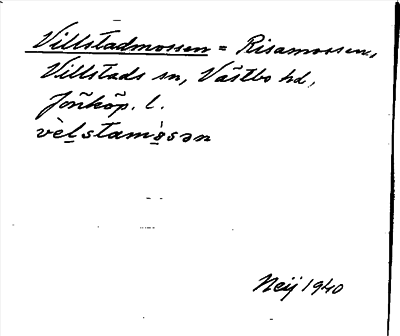 Villstadmossen = Risamossen,
Villstads sn, Västbo hd,
Jönköp. l.
vèl̠stamòs̠sən
Neij 1940